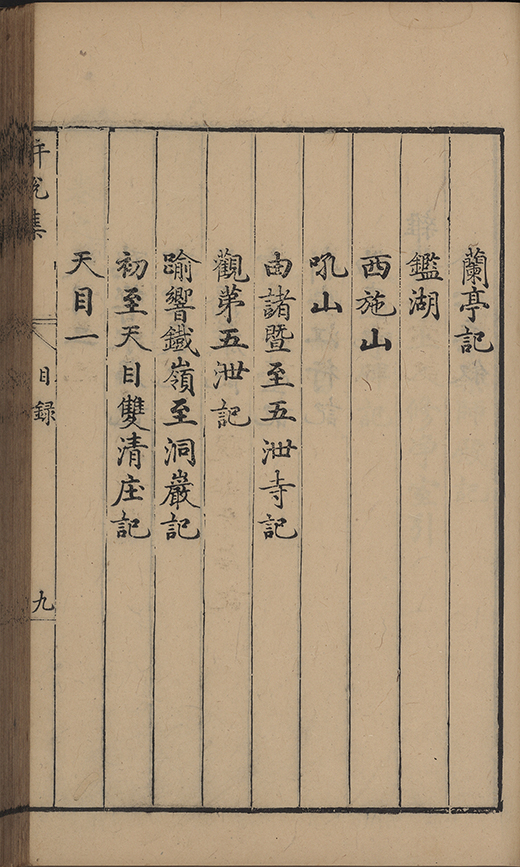 蘭亭記
鑑湖
西施山
吼山
由諸暨至五泄寺記
觀第五泄記
踰響鐵嶺至洞巖記
初至天目雙清庄記
天目一
集
目録
九